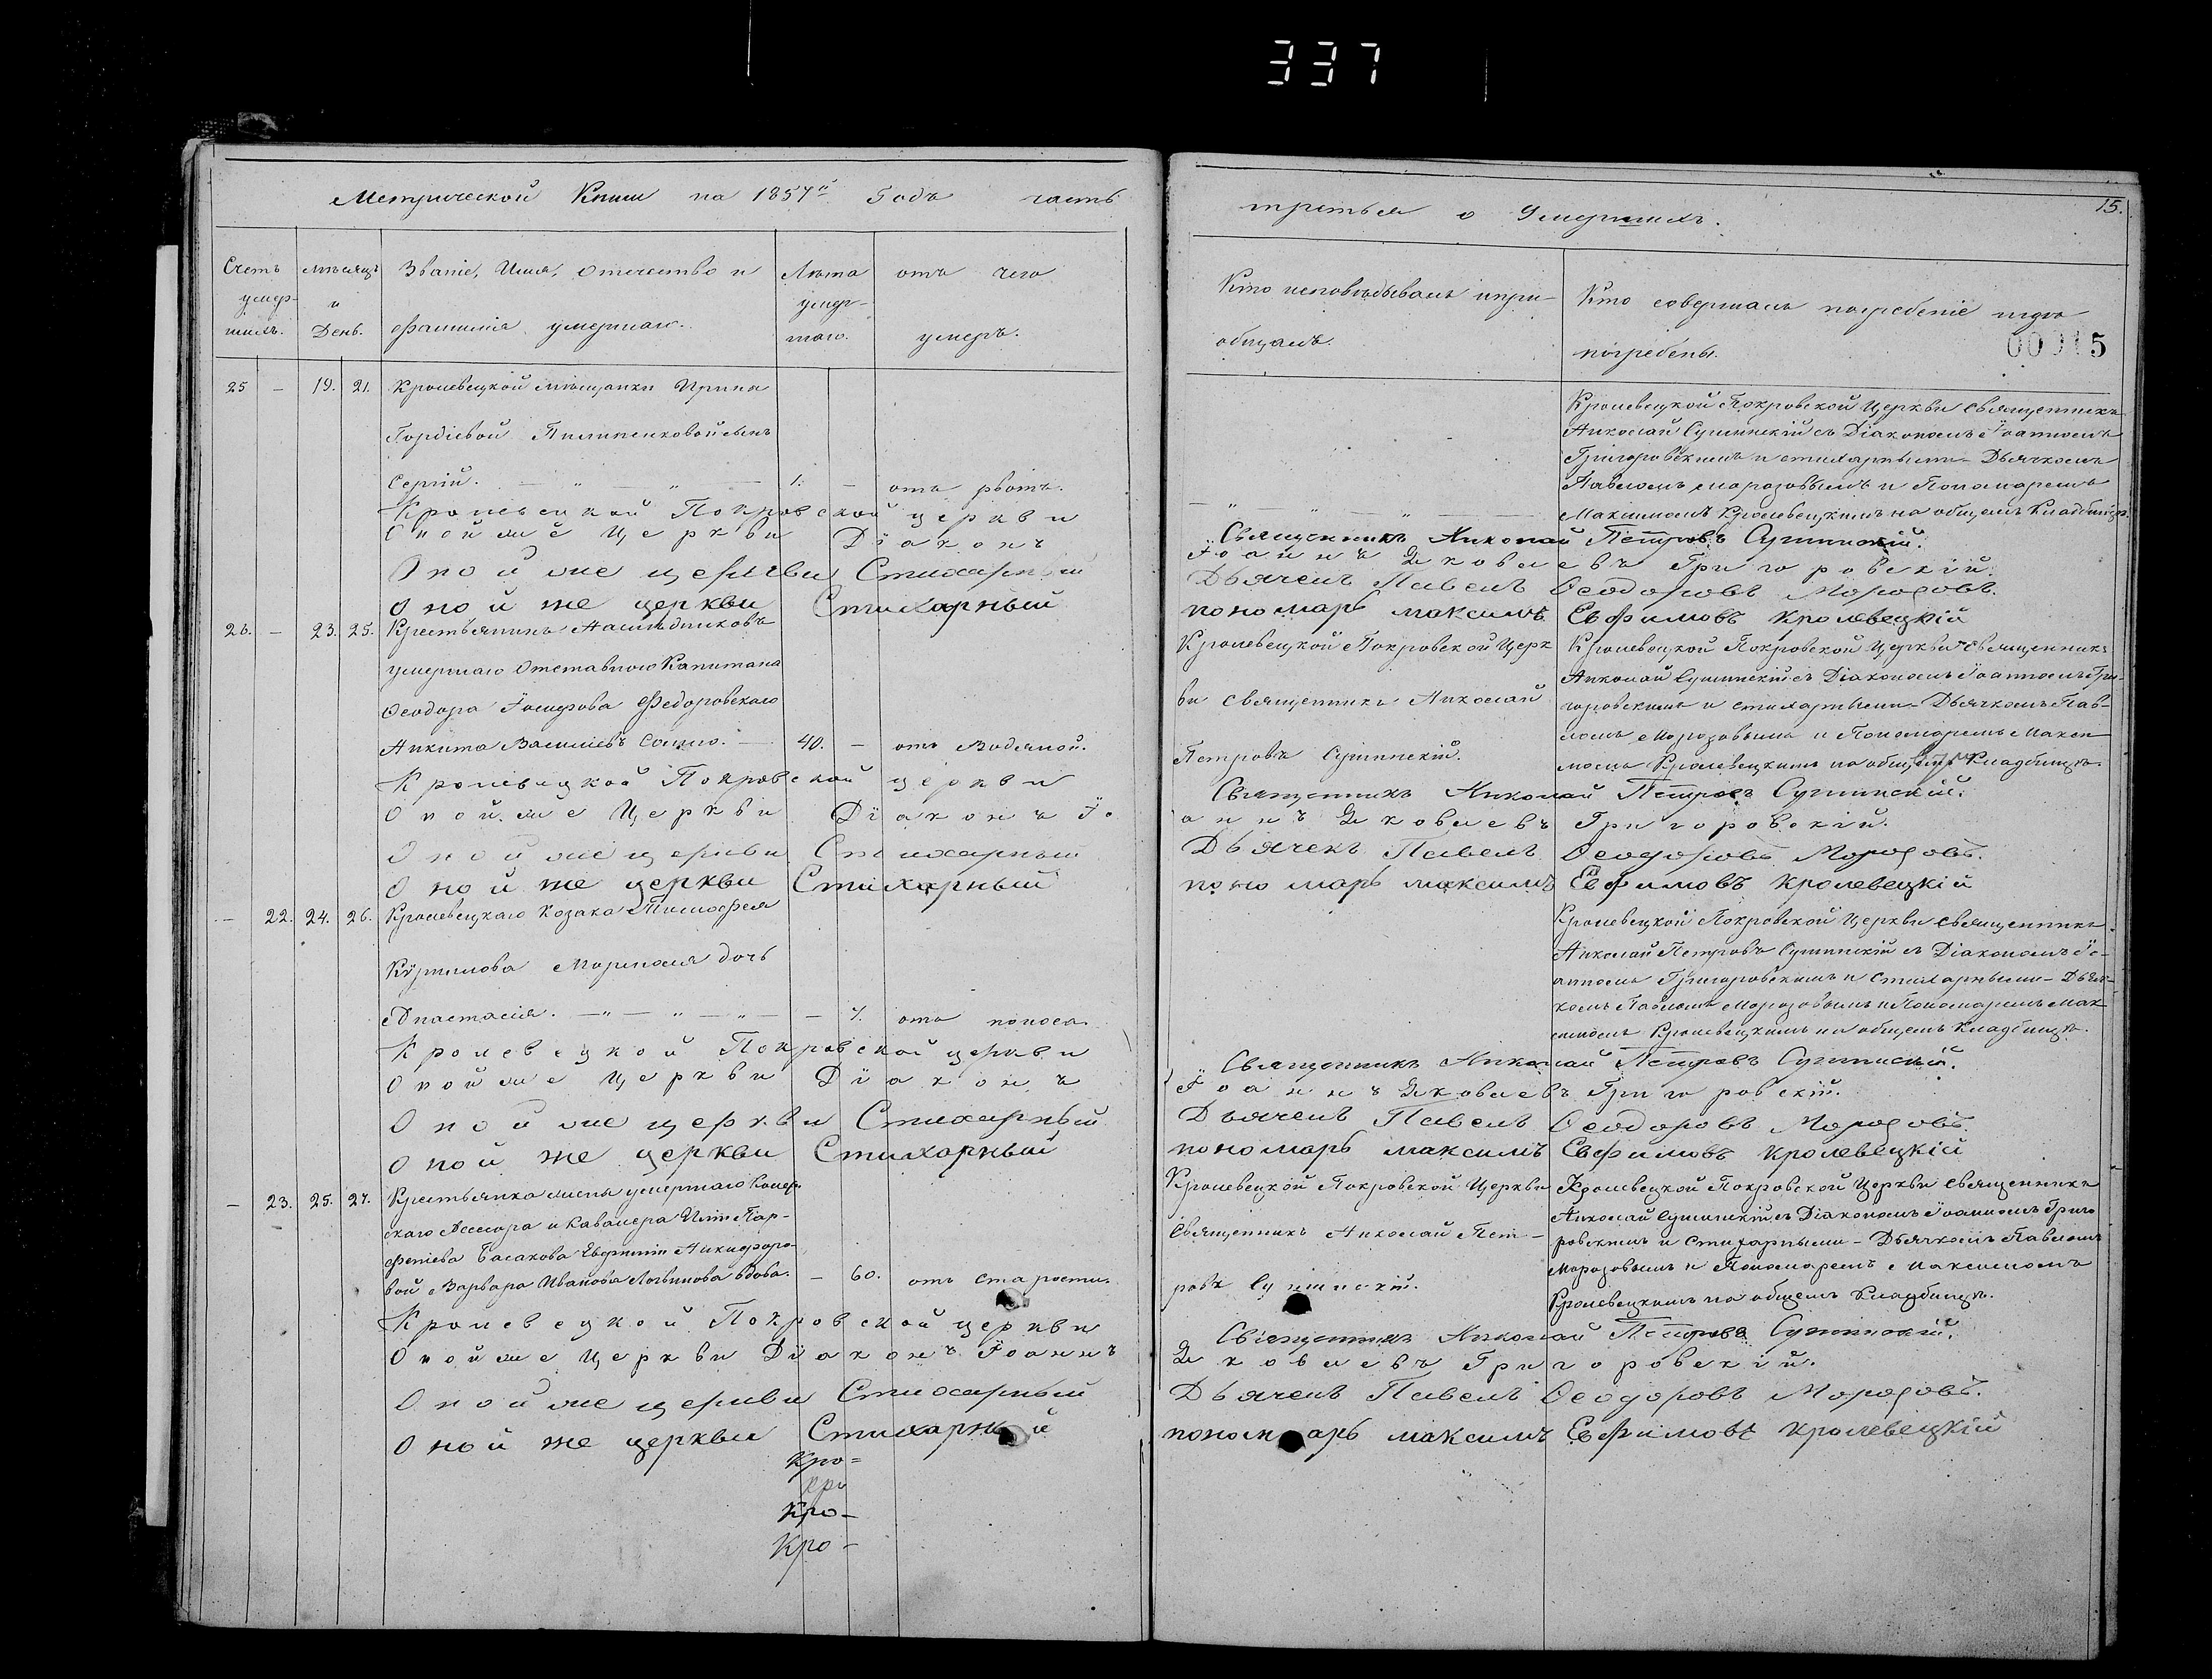 337
Метрической Книги на 1857й Годъ часть
третья о Умершихъ.
15.
Счетъ умер-шихъ.
мѣсяцъ и День.
Званіе, Имя, Отчество и Фамилія умершаго.
Лѣта умер-шаго.
отъ чего умеръ.
Кто исповѣдывалъ и прі-общалъ.
Кто совершалъ погребеніе и гдѣ погребены.
00015
25 — 19. 21. Кролевецкой мѣщанки Ирины
Гордіевой сынъ
Сергій. — „ — „ — 1. — отъ рвотъ.
— „ — „ — „ —
Кролевецкой Покровской Церкви Священникъ
Николай Сушинскій съ Діакономъ Іоанномъ
Григоровскимъ и стихарными — Дьячкомъ
Павломъ Морозовымъ и Пономаремъ
Максимомъ Кролевецкимъ на общемъ Кладбищѣ.
Кролевецкой Покровской церкви Священникъ Николай Петровъ Сушинскій.
Оной же Церкви Діаконъ Іоаннъ Яковлевъ Григоровскій.
Оной же церкви Стихарный Дьячекъ Павелъ Ѳеодоровъ Морозовъ.
Оной же церкви Стихарный пономарь максимъ Евфимовъ кролевецкій
26. — 23. 25. Крестьянинъ Наслѣдниковъ
умершаго Отставного Капитана
Ѳеодора Іосифова Федоровскаго
Никита Василіевъ — 40. — отъ Водяной.
Кролевецкой Покровской Церк
ви Священникъ Николай
Петровъ Сушинскій.
Кролевецкой Покровской Церкви Священникъ
Николай Сушинскій съ Діакономъ Іоанномъ Гри-
горовскимъ и стихарными — Дьячкомъ Пав-
ломъ Морозовымъ и Пономаремъ Макси
момъ Кролевецкимъ на общемъ Кладбищѣ.
Кролевецкой Покровской церкви Священникъ Николай Петровъ Сушинскій.
Оной же Церкви Діаконъ Іоаннъ Яковлевъ Григоровскій.
Оной же церкви Стихарный Дьячекъ Павелъ Ѳеодоровъ Морозовъ.
Оной же церкви Стихарный пономарь максимъ Евфимовъ кролевецкій
— 22. 24. 26. Кролевецкаго Козака Тимофея
дочь
Анастасія. — „ — „ — „ — — 7. отъ поноса.
Кролевецкой Покровской Церкви Священникъ
Николай Петровъ Сушинскій съ Діакономъ Іо-
анномъ Григоровскимъ и Стихарными — Дьяч-
комъ Павломъ Морозовымъ и Пономаремъ Мак
симомъ Кролевецкимъ на общемъ Кладбищѣ.
Кролевецкой Покровской церкви Священникъ Николай Петровъ Сушинскій.
Оной же Церкви Діаконъ Іоаннъ Яковлевъ Григоровскій.
Оной же церкви Стихарный Дьячекъ Павелъ Ѳеодоровъ Морозовъ.
Оной же церкви Стихарный пономарь максимъ Евфимовъ кролевецкій
— 23. 25. 27. Крестьянка жены умершаго Колеж
скаго Асессора и Кавалера Пар-
феніева Евфиміи Никифоро-
вой Варвара Иванова вдова. — 60. отъ старости.
Кролевецкой Покровской Церкви
Священникъ Николай Пет-
ровъ Сушинскій.
Кролевецкой Покровской Церкви Священникъ
Николай Сушинскій съ Діакономъ Іоанномъ Григо
ровскимъ и Стихарными — Дьячкомъ Павломъ
Морозовымъ и Пономаремъ Максимомъ
Кролевецкимъ на общемъ Кладбищѣ.
Кролевецкой Покровской церкви Священникъ Николай Петровъ Сушинскій.
Оной же Церкви Діаконъ Іоаннъ Яковлевъ Григоровскій.
Оной же церкви Стихарный Дьячекъ Павелъ Ѳеодоровъ Морозовъ.
Оной же церкви Стихарный пономарь максимъ Евфимовъ кролевецкій
Кро=
Кро-
Кро-